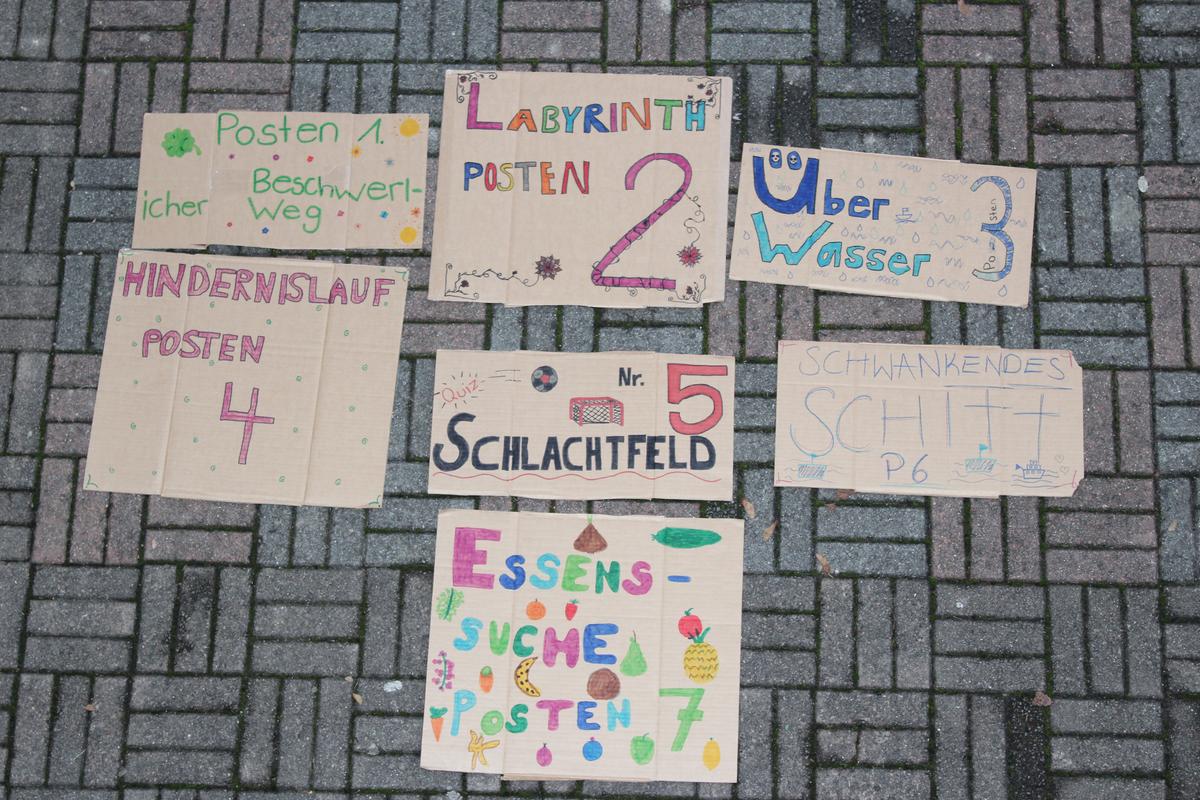 Posten 1.
Beschwerl-
icher Weg
LABYRINTH
POSTEN 2
Über
Wasser
Posten 3
HINDERNISLAUF
POSTEN
4
Quiz
Nr. 5
SCHLACHTFELD
SCHWANKENDES
SCHITT
P6
ESSENS-
SUCHE
POSTEN 7